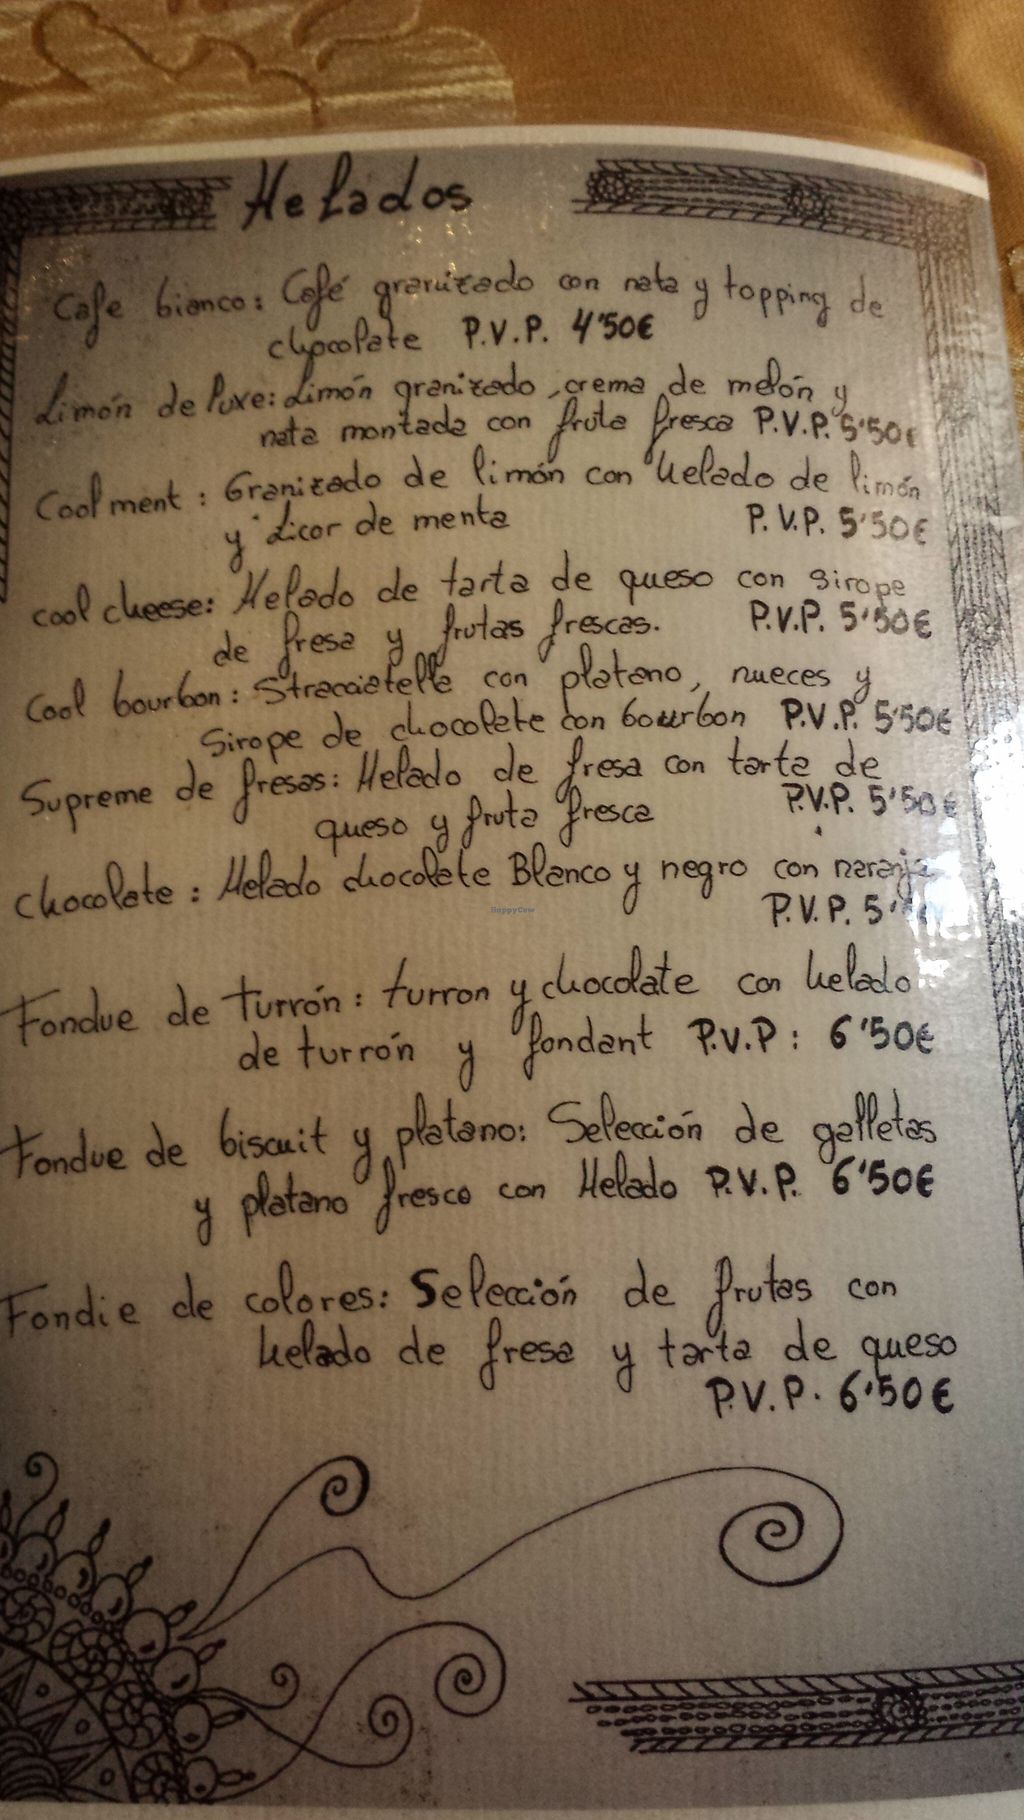 Helados
Cafe bianco: Café granizado con nata y topping de
chocolate P.V.P. 4'50€
Limón de luxe: Limón granizado, crema de melón y
nata montada con fruta fresca P.V.P. 5'50€
Cool ment: Granizado de limón con Helado de limón
y Licor de menta P.V.P. 5'50€
cool cheese: Helado de tarta de queso con sirope
de fresa y frutas frescas. P.V.P. 5'50€
Cool bourbon: Stracciatella con platano, nueces y
sirope de chocolate con bourbon P.V.P. 5'50€
Supreme de fresas: Helado de fresa con tarta de
queso y fruta fresca P.V.P. 5'50€
chocolate: Helado chocolate Blanco y negro con naranja
P.V.P. 5'
HappyCow
Fondue de turrón: turron y chocolate con helado
de turrón y fondant P.V.P: 6'50€
Fondue de biscuit y platano: Selección de galletas
y platano fresco con Helado P.V.P. 6'50€
Fondie de colores: Selección de frutas con
helado de fresa y tarta de queso
P.V.P. 6'50€